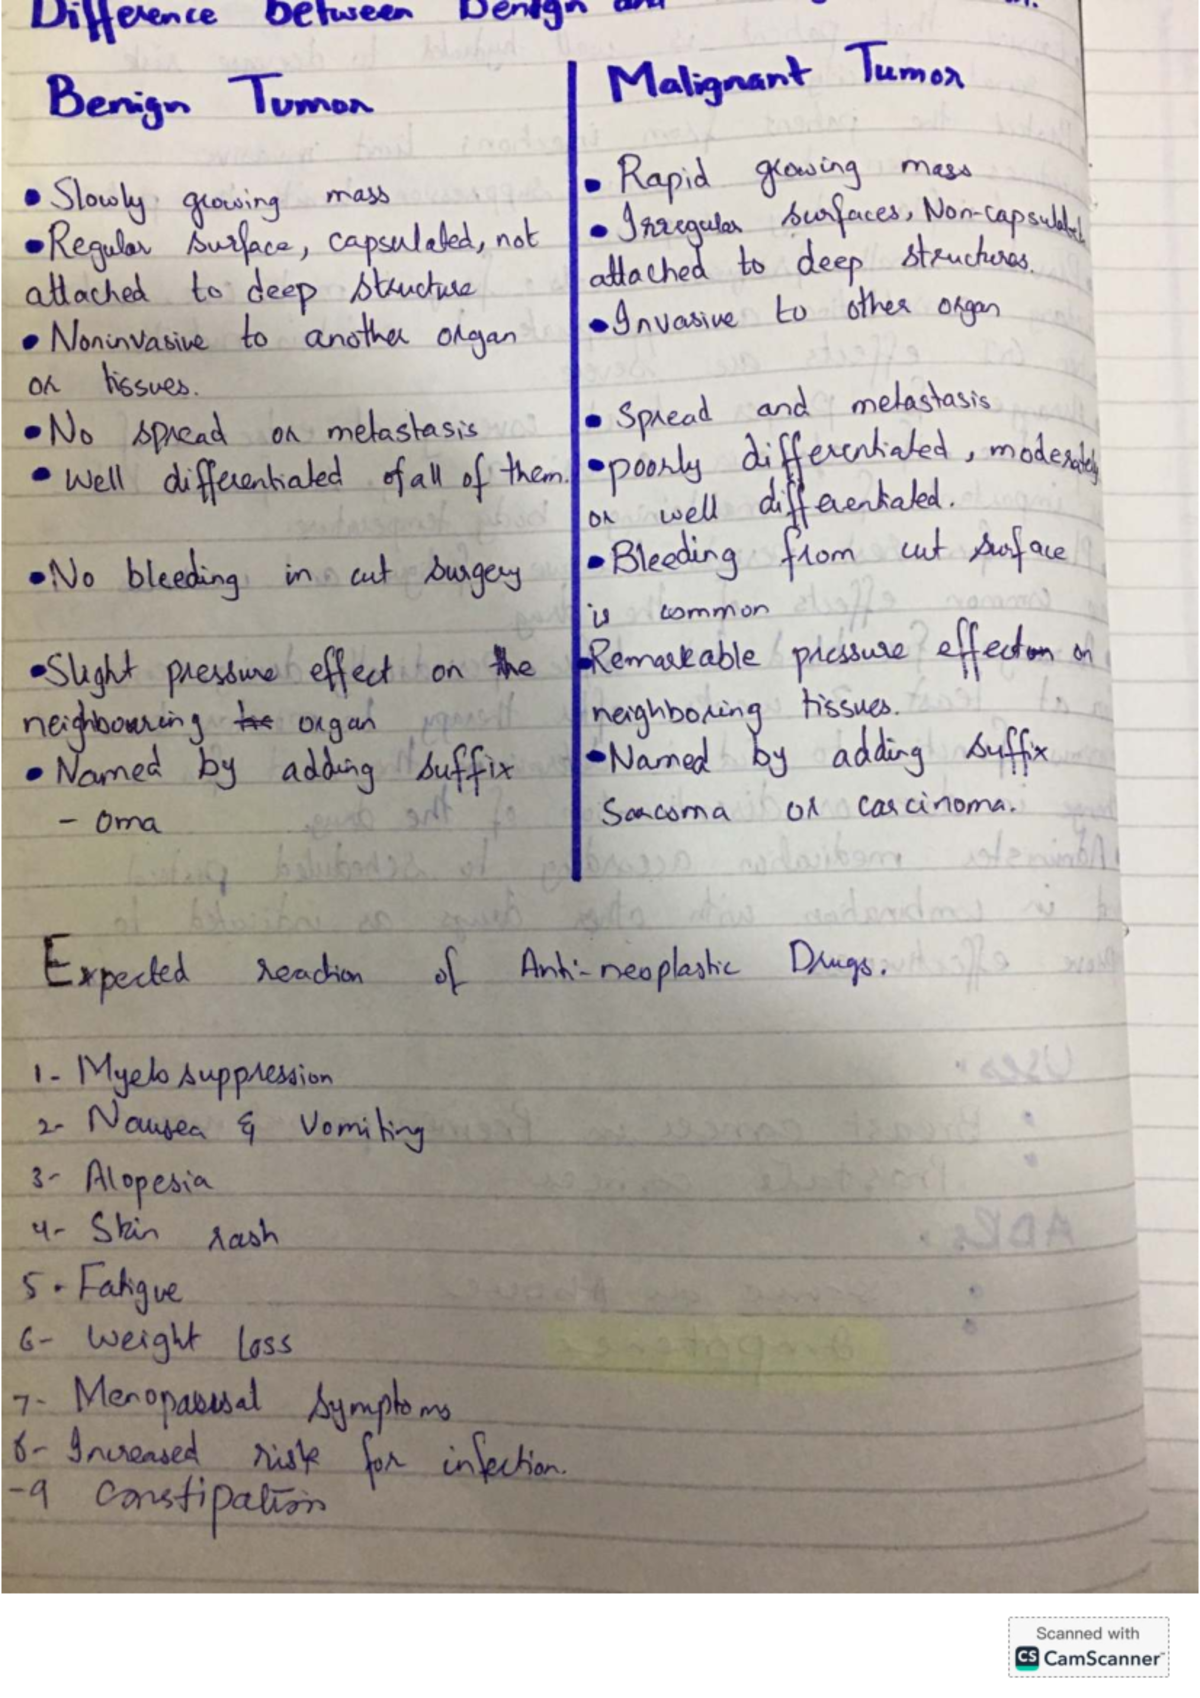 Difference between Benign and
Benign Tumor
• Slowly growing mass
• Regular surface, capsulated, not
attached to deep structure
• Noninvasive to another organ
or tissues.
• No spread or metastasis
• Well differentiated of all of them.
• No bleeding in cut surgery
• Slight pressure effect on the
neighbouring organ
• Named by adding suffix
- oma
Malignant Tumor
• Rapid growing mass
• Irregular surfaces, Non-capsulated
attached to deep structures.
• Invasive to other organ
• Spread and metastasis
• poorly differentiated, moderately
or well differentiated.
• Bleeding from cut surface
is common
• Remarkable pressure effect on
neighboring tissues.
• Named by adding suffix
Sarcoma or carcinoma.
Expected reaction of Anti-neoplastic Drugs.
1- Myelosuppression
2- Nausea & Vomiting
3- Alopesia
4- Skin rash
5. Fatigue
6- Weight Loss
7- Menopausal Symptoms
8- Increased risk for infection.
-9 Constipation
Scanned with
CS CamScanner